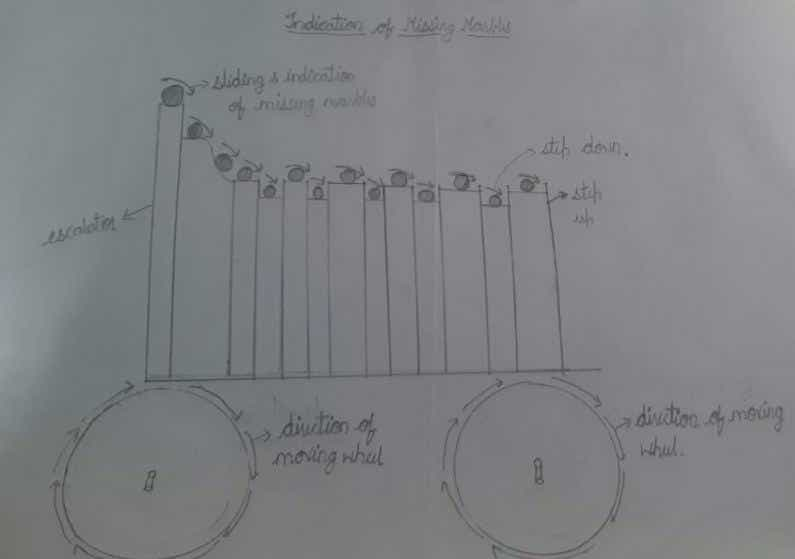 Indication of Missing Marbles
sliding & indication
of missing marbles
step down.
step
up
escalator
direction of
moving wheel
direction of moving
wheel.